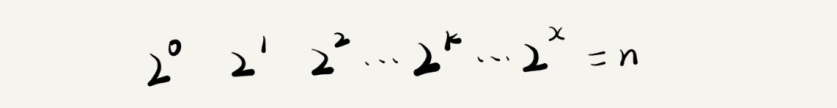 2⁰ 2¹ 2² ... 2ᵏ ... 2ˣ = n